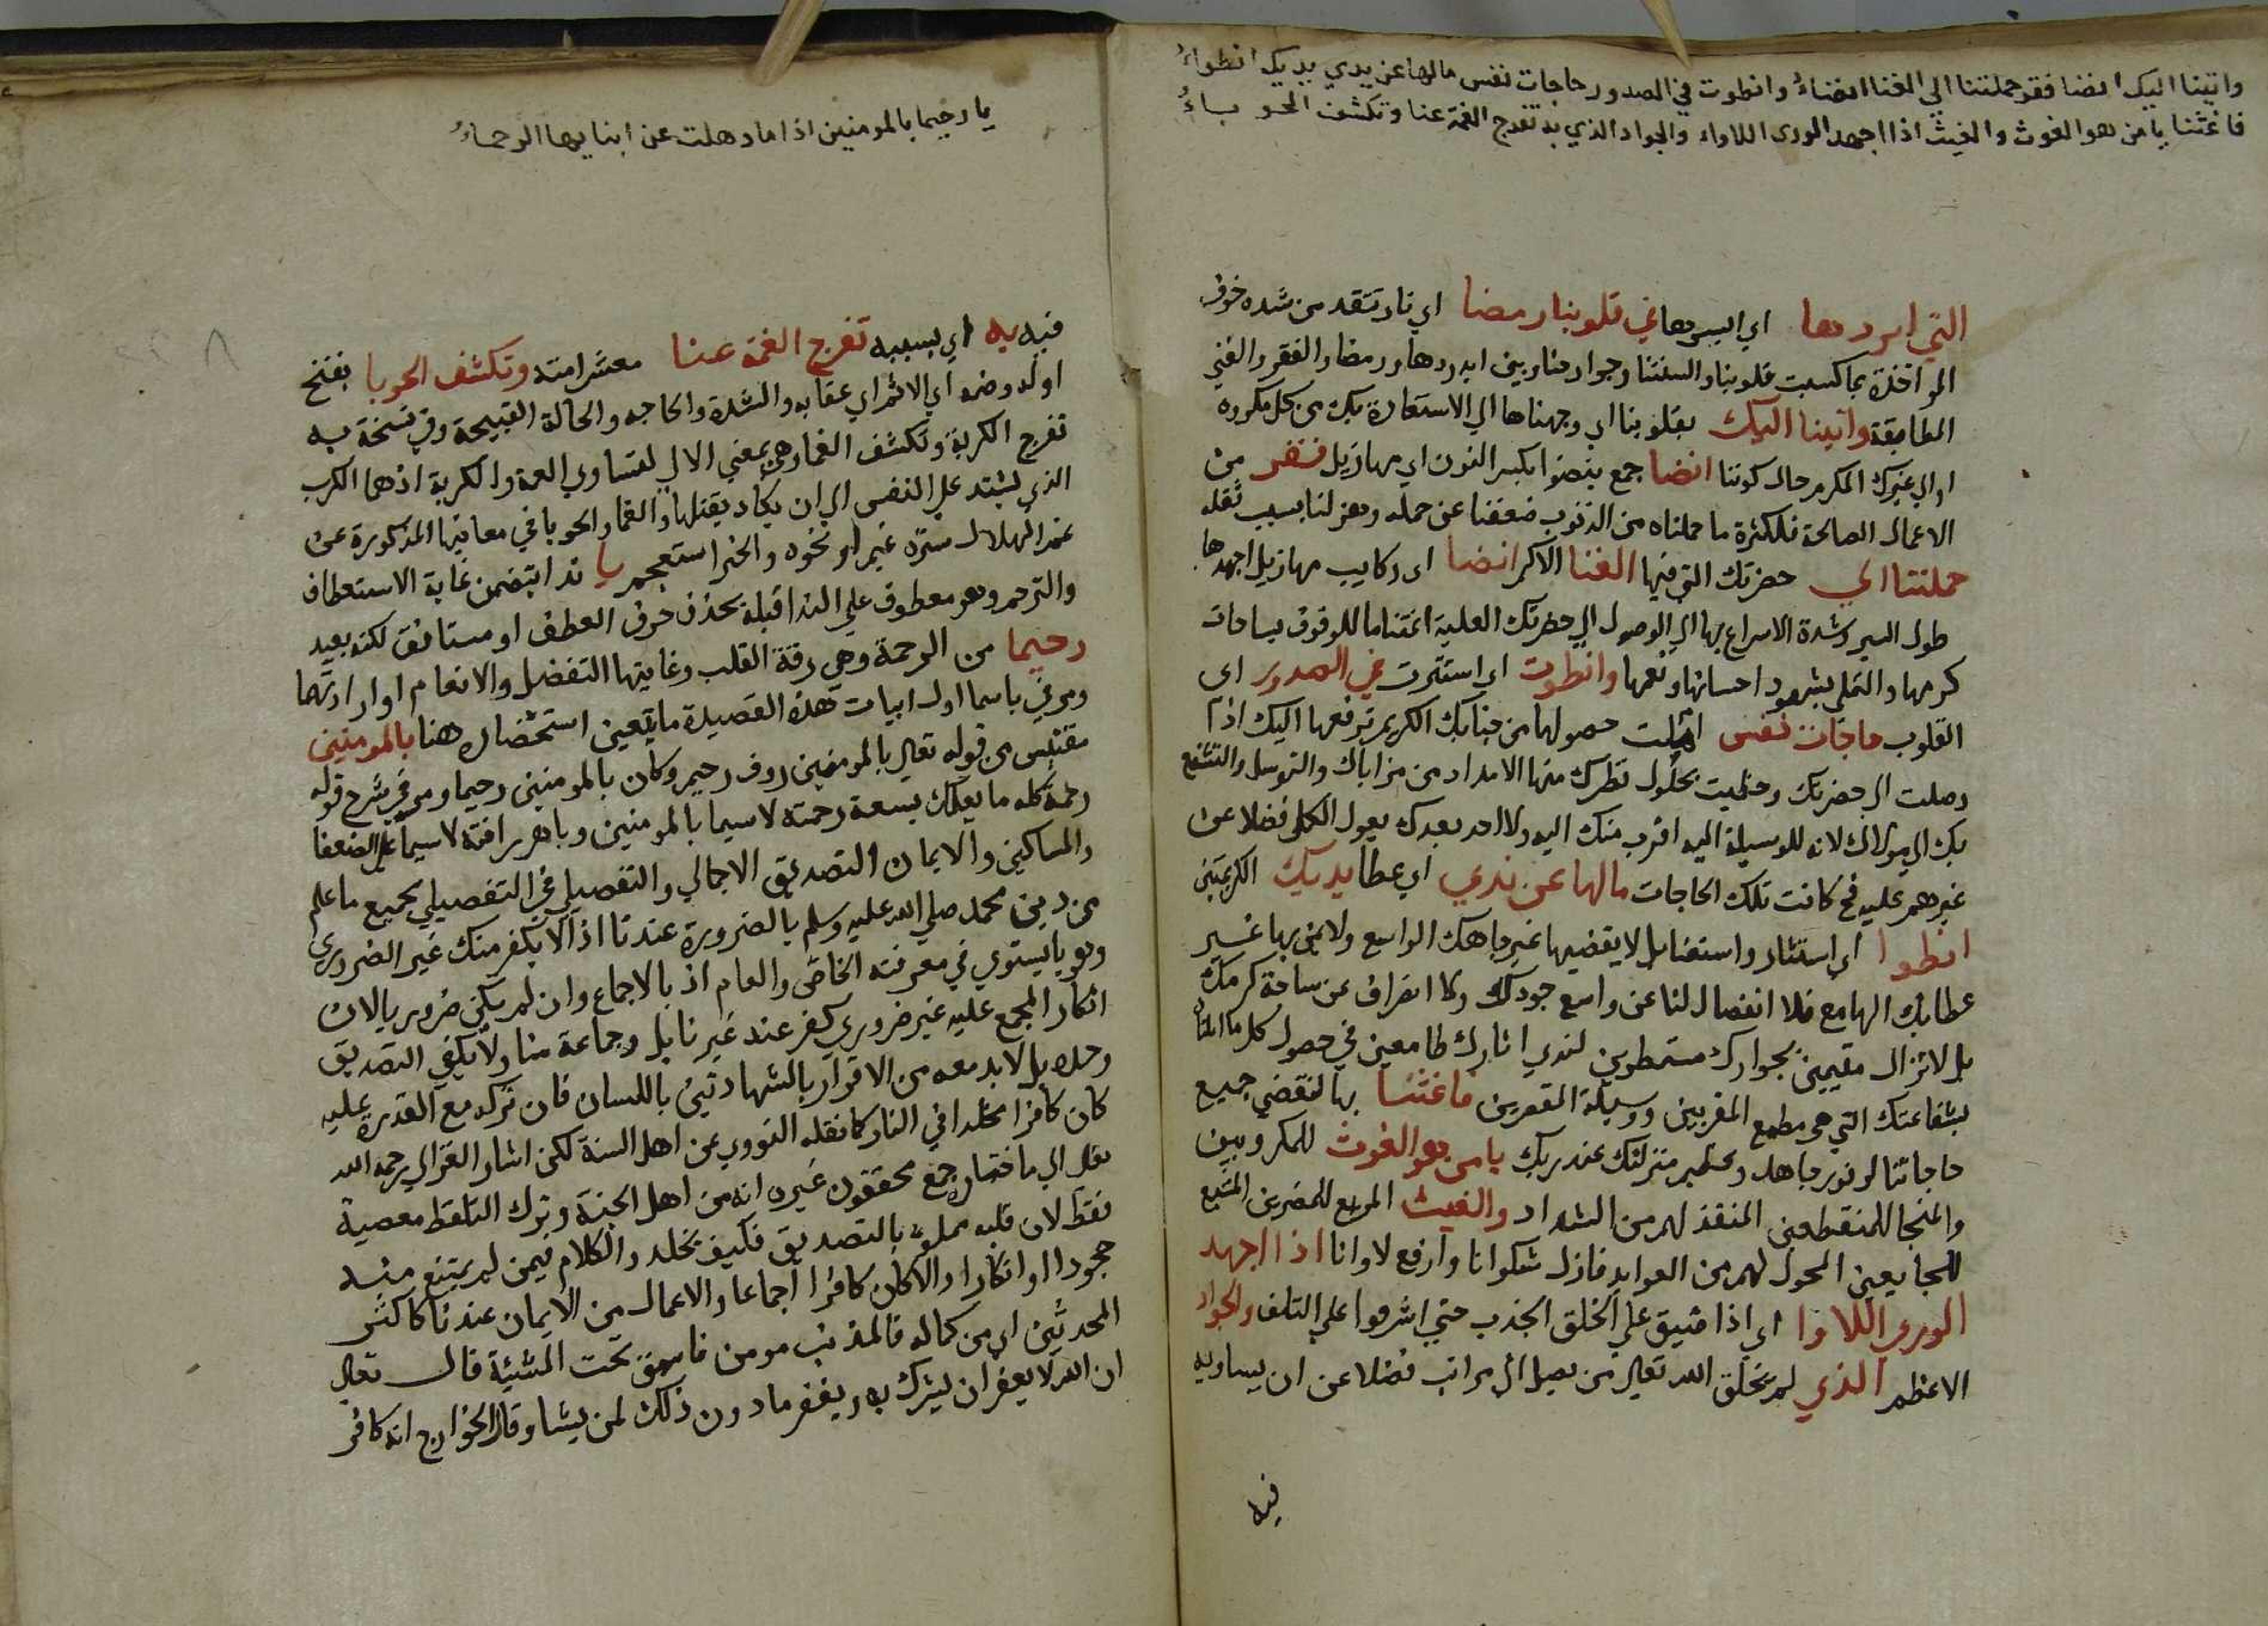 واتينا اليك انضا فقر حملتنا الي الغنا انضاءُ وانطوت في الصدور حاجات نفس مالها عن يدي يديك انطواءُ
فاغثنا يا من هو الغوث والغيث اذا اجهد الورى اللاواء والجواد الذي به تفرج الغمة عنا وتكشف الحوباءُ
التي ابردها اي اليسرها في قلوبنا رمضا اي نار تتقد من شده خوف
المواخذة بما كسبت قلوبنا والسنتنا وجوارحنا وبين ابردها ورمضا والفقر والغني
المطابقة واتينا اليك بقلوبنا اي وجهناها الي الاستعاذة بك من كل مكروه
او الي قبرك المكرم حال كوننا انضا جمع بنضو بكسر النون اي مهازيل فقر من
الاعمال الصالحة فلكثرة ما حملناه من الذنوب ضعفنا عن حمله وهزلنا بسبب ثقله
حملتنا الي حضرتك التي فيها الغنا الاكبر انضا اي ركايب مهازيل اجهدها
طول السير وشدة الاسراع بها الي الوصول الي حضرتك العلية اغتناما للوقوف بساحات
كرمها والتملي بشهود احسانها ونعمها وانطوت اي استترت في الصدور اي
القلوب حاجات نفس املت حصولها من جنابك الكريم ترفعها اليك اذا
وصلت الي حضرتك وحظيت بحلول نظرك منها الامداد من مزاياك والتوسل والتشفع
بك الي مولاك لانه للوسيلة اليه اقرب منك اليه ولا احد بعدك يعول الكل فضلا عن
غيرهم عليه فح كانت تلك الحاجات مالها عن ندي اي عطا يديك الكريمتين
انطوا اي استتار واستغنا بل لا يقضيها غير جاهك الواسع ولا يمن بها غير
عطايك الهامع فلا انفصال لنا عن واسع جودك ولا انصراف عن ساحة كرمك
بل لا نزال مقيمين بجوارك مستمطرين لندي اثارك طامعين في حصول كل ما املنا
بشفاعتك التي هي مطمع المقربين ووسيلة المقصرين فاغثنا بها لتقضي جميع
حاجاتنا لوفور جاهك وعظيم منزلتك عند ربك يا من هو الغوث للمكروبين
والمنجا للمنقطعين المنقذ لهم من الشداد والغيث المريع للمضرين المشبع
للجايعين المحول لهم من العوايد فازل شكوانا وارفع لاوانا اذا اجهد
الوري اللاوا اي اذا ضيق علي الخلق الجذب حتي اشرفوا علي التلف والجواد
الاعظم الذي لم يخلق الله تعالي من يصل الي مراتب فضلا عن ان يساويه
فيه
يا رحيما بالمومنين اذا ما ذهلت عن ابنايها الرحماءُ
فيه به اي بسببه تفرج الغمة عنا معشر امته وتكشف الحوبا بفتح
اوله وضمه اي الاثم اي عقابه والشدة والحاجه والحالة القبيحة وفي نسخة به
تفرج الكربة وتكشف الغما وهي بمعني الاولي لتساوي الغمة والكربة اذهما الكرب
الذي يشتد علي النفس الي ان يكاد يقتلها والغما والحوبا في معانيها المذكورة من
غم الهلال ستره غيم او نحوه والخبر استعجم يا ندا يتضمن غاية الاستعطاف
والترحم وهو معطوف علي الندا قبله بحذف حرف العطف او مستانف لكنه بعيد
رحيما من الرحمة وهي رقة القلب وغايتها التفضل والانعام او ارادتهما
ومر في باسما اول ابيات هذه القصيدة ما يتعين استحضاره هنا بالمومنين
مقتبس من قوله تعالي بالمومنين روف رحيم وكان بالمومنين رحيما ومر في شرح قوله
رحمة كله ما يعلمك بسعة رحمته لاسيما بالمومنين وباهر رافته لاسيما علي الضعفا
والمساكين والايمان التصديق الاجمالي والتفصيلي في التفصيلي بجميع ما علم
من دين محمد صلي الله عليه وسلم بالضرورة عندنا اذ لا يكفر منكر غير الضروري
وهو ما يستوي في معرفته الخاص والعام اذ بالاجماع وان لم يكن ضروريا لان
انكار المجمع عليه غير ضروري كفر عند غيرنا بل وجماعة منا ولا يكفي التصديق
وحده بل لا بد معه من الاقرار بالشهادتين باللسان فان تركه مع القدرة عليه
كان كافرا مخلدا في النار كما نقله النووي عن اهل السنة لكن اشار الغزالي رحمه الله
تعالي الي ما اختاره جمع محققون غيره انه من اهل الجنة وترك التلفظ معصية
فقط لان قلبه مملوء بالتصديق فكيف يخلد والكلام فيمن لم يمتنع منه
جحودا او انكارا والا كان كافرا اجماعا والاعمال من الايمان عندنا كاكثر
المحدثين اي من كماله فالمذنب مومن فاسق تحت المشيئة قال تعالي
ان الله لا يغفر ان يشرك به ويغفر ما دون ذلك لمن يشا وقال الخوارج انه كافر